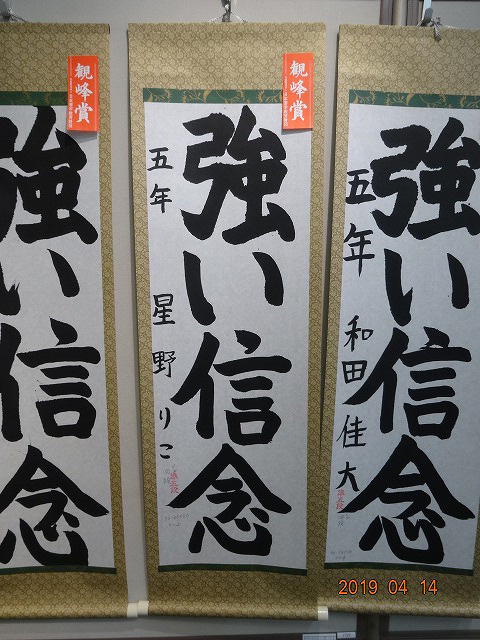 強い信念
五年 和田佳大
準五段
観峰賞
強い信念
五年 星野りこ
準五段
観峰賞
強い信念
2019 04 14